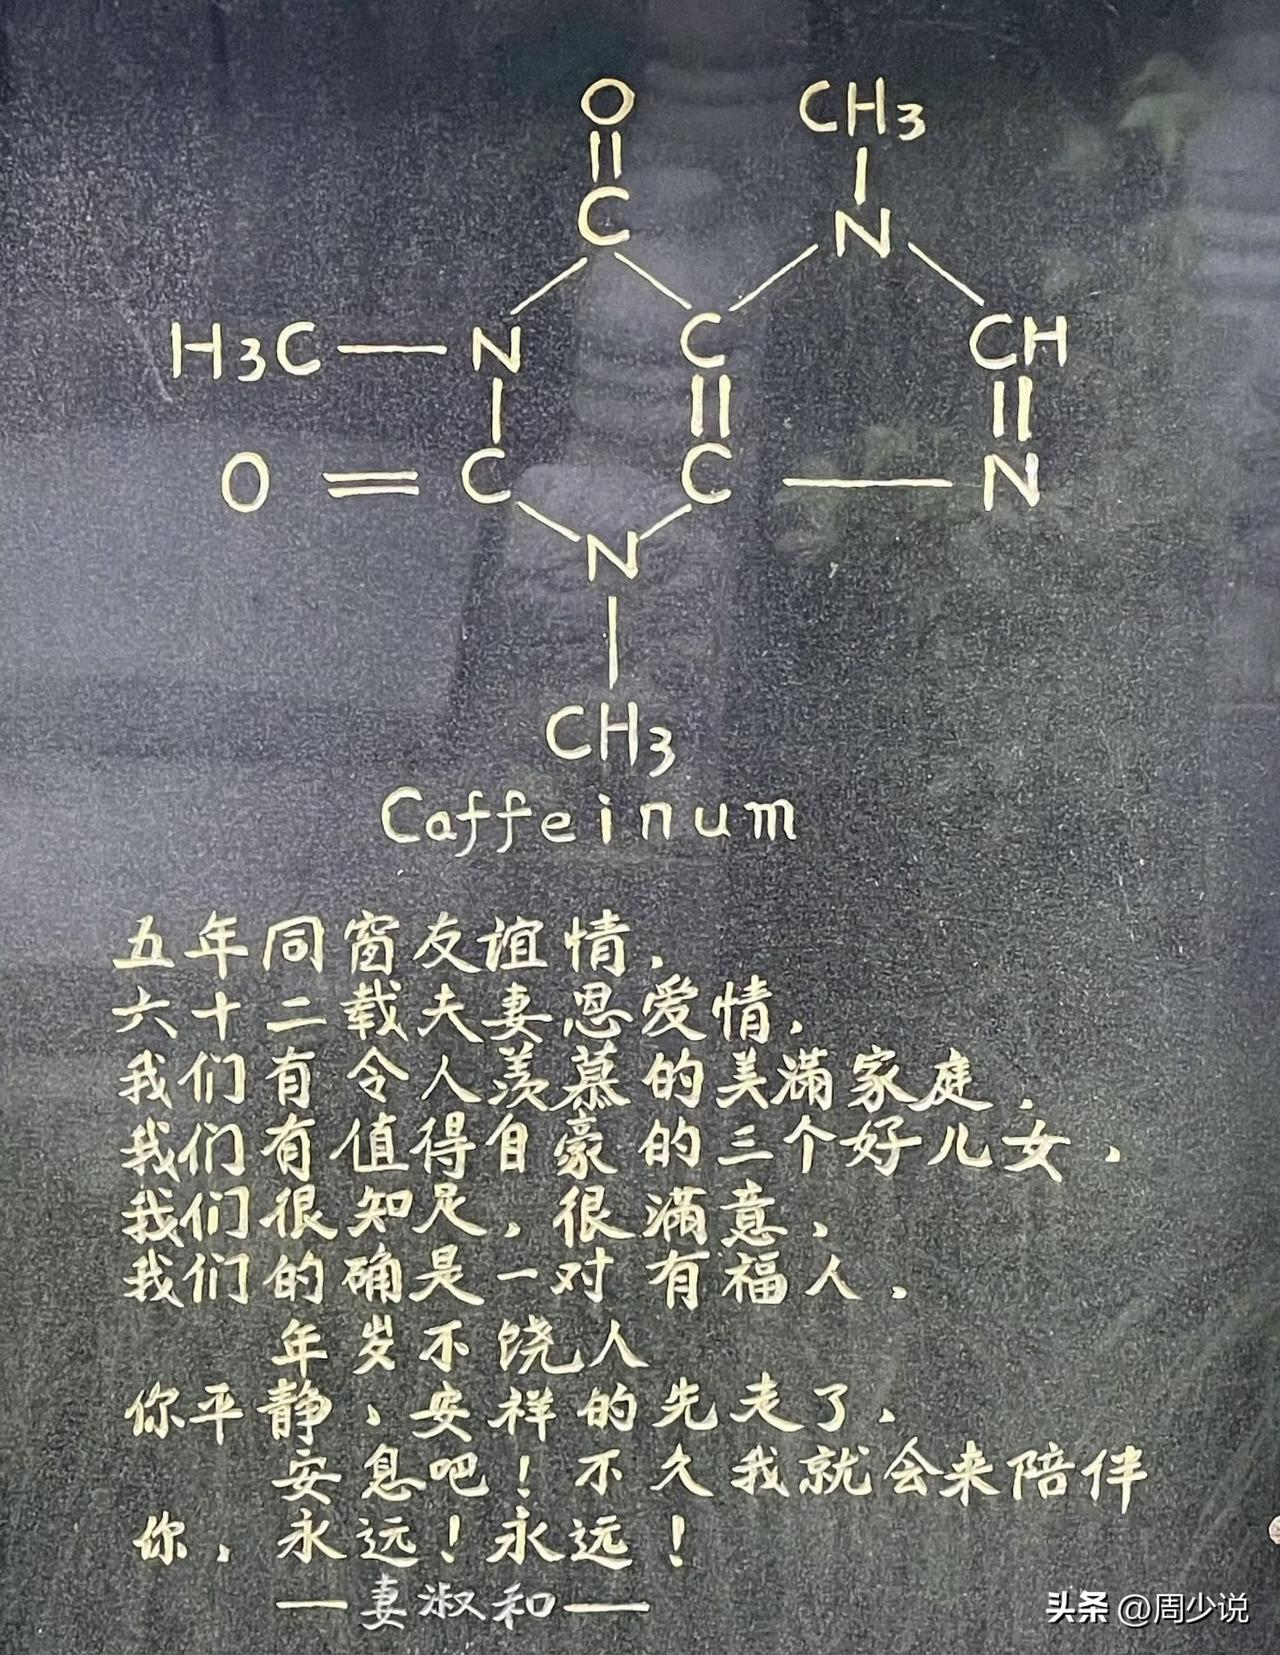 O
CH3
C
N
H3C
N
C
CH
O
C
C
N
N
CH3
Caffeinum
五年同窗友谊情,
六十二载夫妻恩爱情,
我们有令人羡慕的美满家庭,
我们有值得自豪的三个好儿女,
我们很知足,很满意,
我们的确是一对有福人,
年岁不饶人
你平静、安祥的先走了,
安息吧!不久我就会来陪伴
你,永远!永远!
—妻淑和—
头条 @周少说